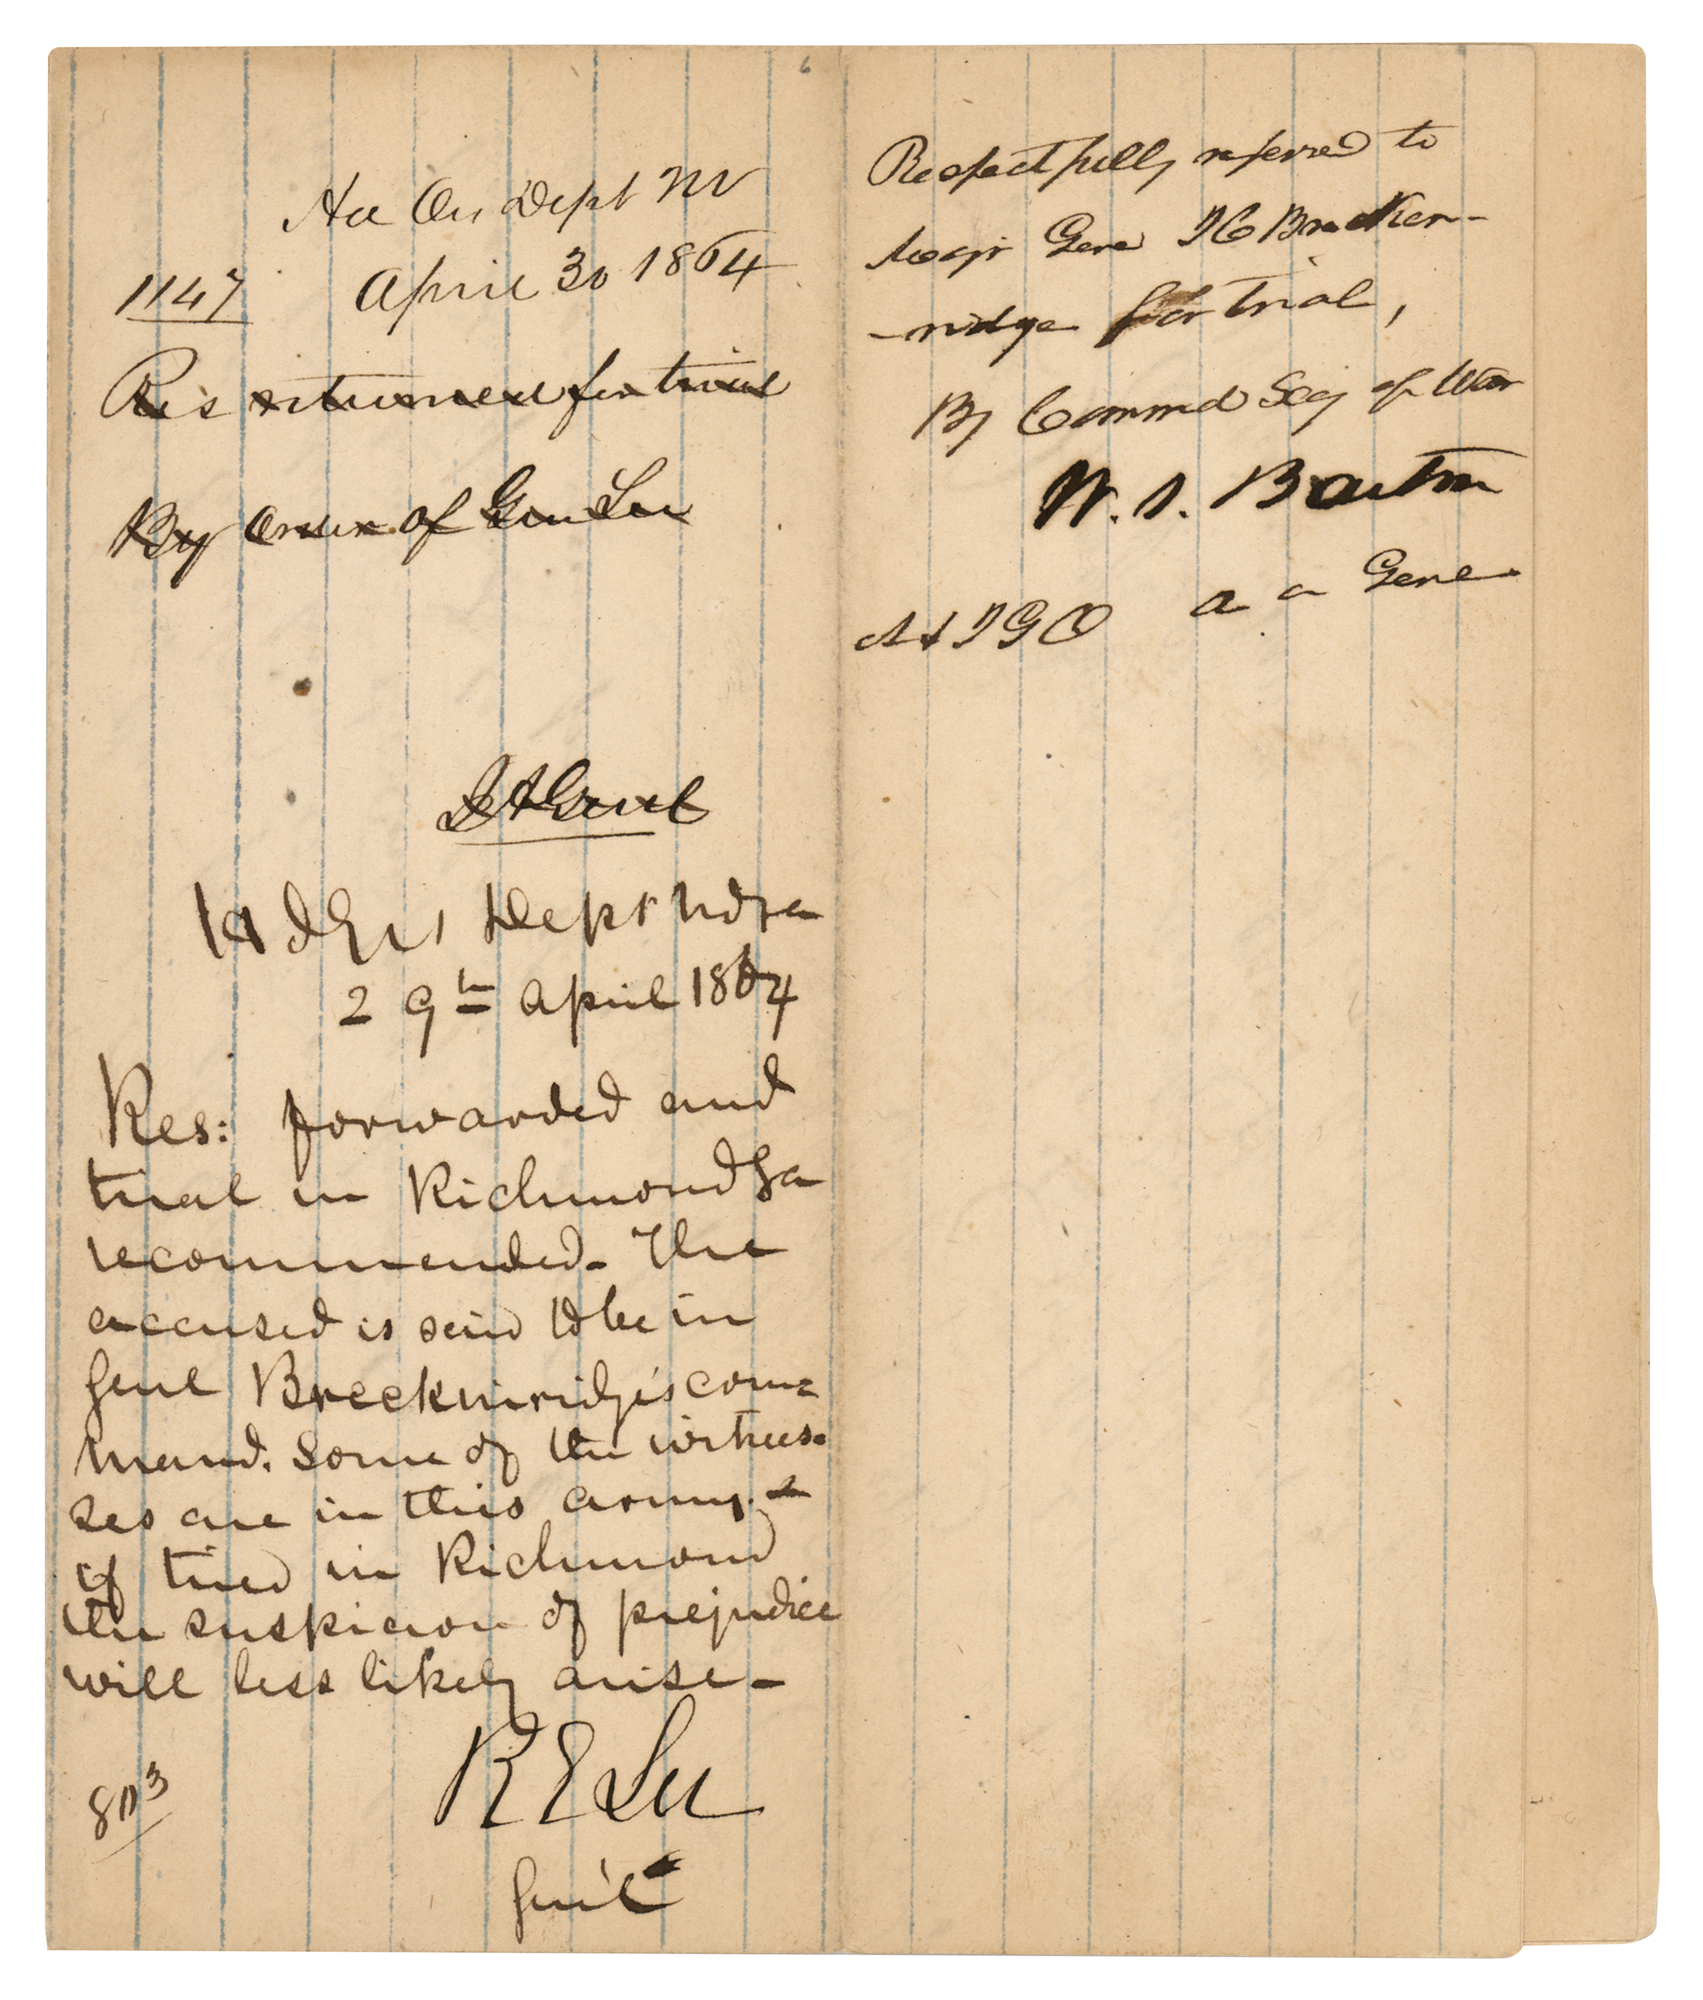 6
Hd Qrs Dept NV
1147 April 30 1864
Res returned for trial
By Order of Gen Lee
Hd Qrs Dept NoVa
29th April 1864
Res: forwarded and
trial in Richmond Va
recommended. The
accused is said to be in
Genl Breckinridge's com=
mand. Some of the witnes-
ses are in this army. -
if tried in Richmond
the suspicion of prejudice
will less likely arise -
R E Lee
Genl
803
Respectfully referred to
Majr Genl J C Brecken-
-ridge for trial,
By Command Secy of War
W. S. Barton
A & I G O a a Genl